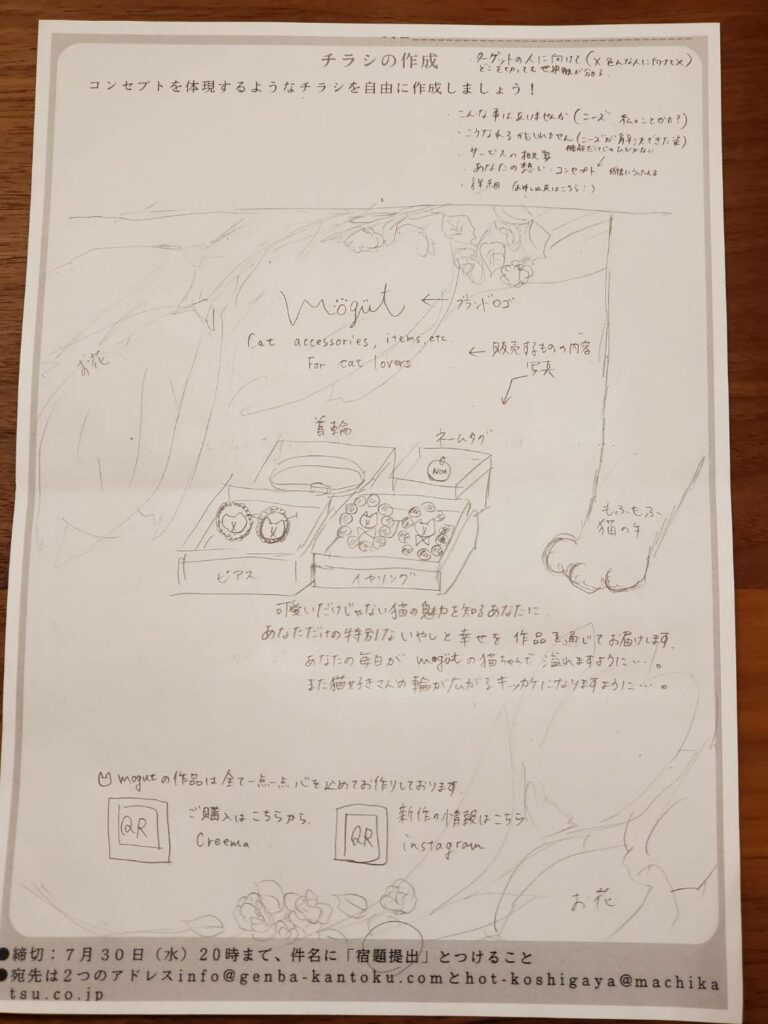 チラシの作成
コンセプトを体現するようなチラシを自由に作成しましょう！
・ターゲットの人に向けて(×色んな人に向けて×)
・どこを切っても世界観が分る
・こんな事はありませんか(ニーズ、私のことかも?)
・こうなれるかもしれません(ニーズが解決できた姿)
・サービスの概要
機能だけじゃひびかない
・あなたの想い・コンセプト
感情にうったえる
・詳細(お申し込みはこちら:)
mögüt ← ブランドロゴ
Cat accessories, items, etc.
For cat lovers
← 販売するものの内容
写真
お花
首輪
ネームタグ
NOA
ピアス
イヤリング
もふもふ
猫の手
可愛いだけじゃない猫の魅力を知るあなたに
あなただけの特別ないやしと幸せを作品を通じてお届けします.
あなたの毎日がmögütの猫ちゃんで溢れますように…。
また猫好きさんの輪が広がるキッカケになりますように…。
mogutの作品は全て一点一点心を込めてお作りしております.
QR
ご購入はこちらから.
Creema
QR
新作の情報はこちら
instagram
お花
●締切：７月３０日（水）２０時まで、件名に「宿題提出」とつけること
●宛先は２つのアドレスinfo@genba-kantoku.comとhot-koshigaya@machika
tsu.co.jp